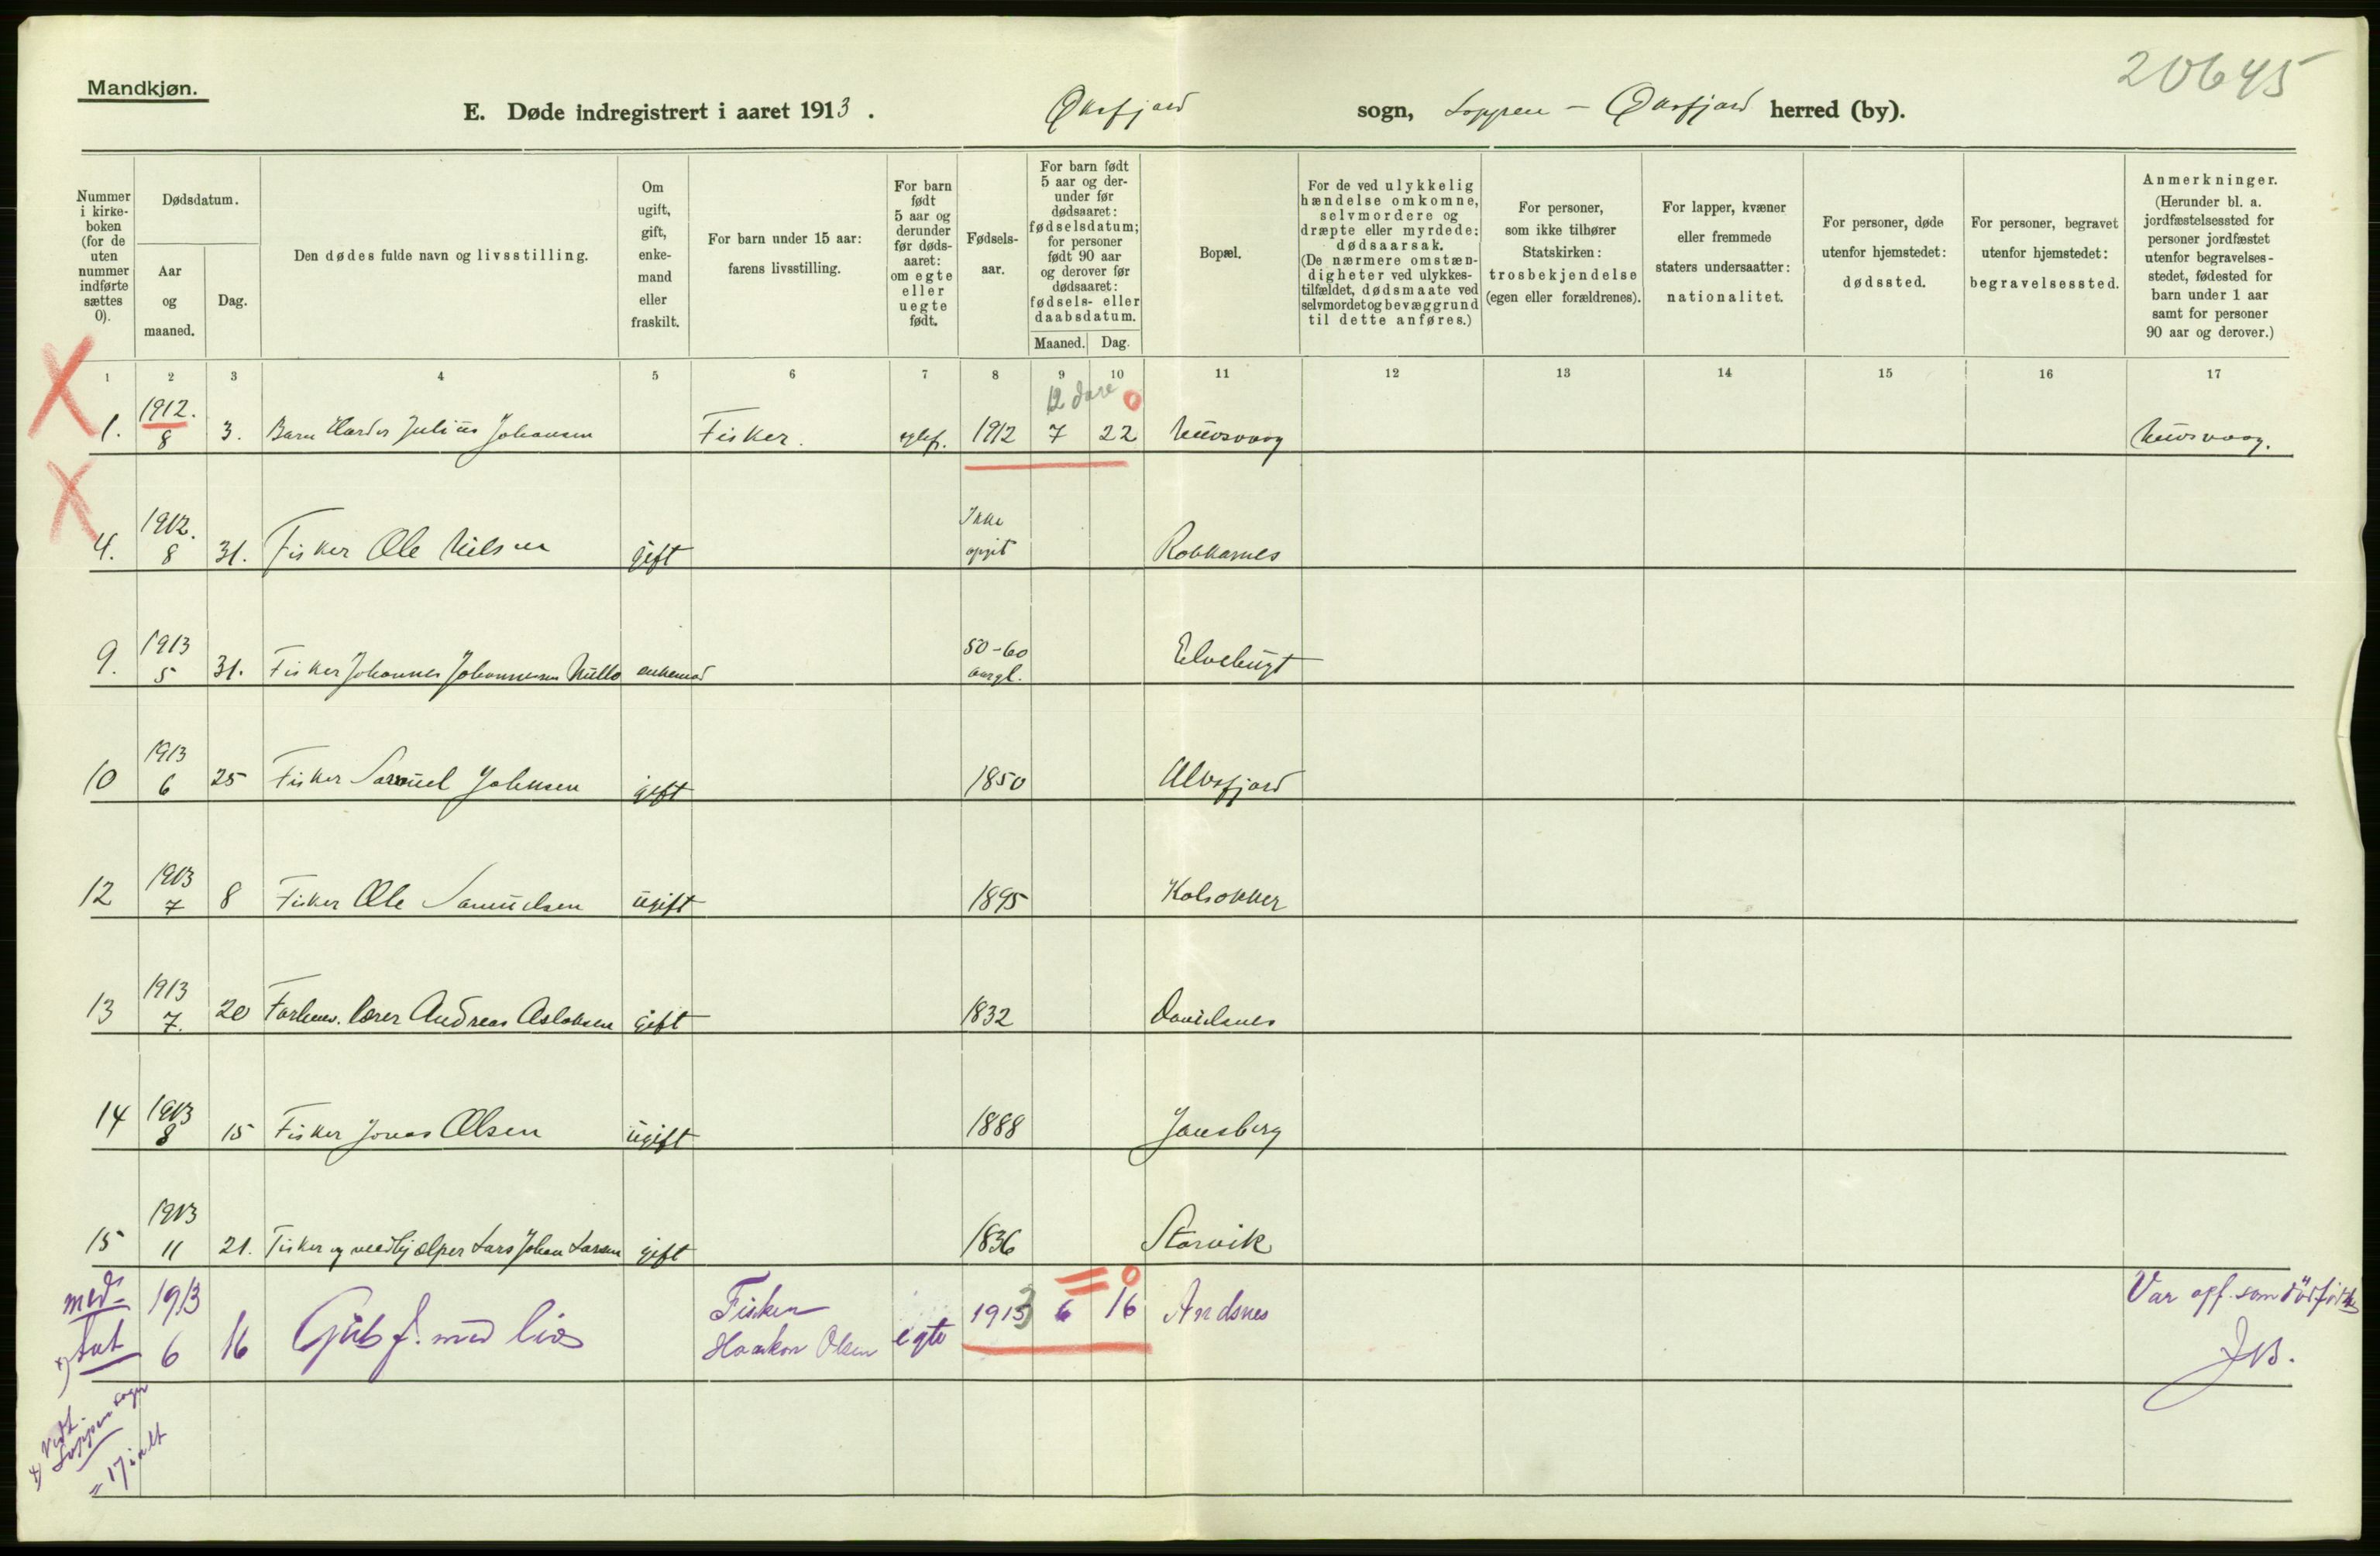 Mandkjøn.
20645
E. Døde indregistrert i aaret 1913. Øksfjord sogn, Loppen - Øksfjord herred (by).
Nummer i kirke-boken (for de uten nummer indførte sættes 0).
Dødsdatum.
Aar og maaned.
Dag.
Den dødes fulde navn og livsstilling.
Om ugift, gift, enke-mand eller fraskilt.
For barn under 15 aar: farens livsstilling.
For barn født 5 aar og derunder før døds-aaret: om egte eller uegte født.
Fødsels-aar.
For barn født 5 aar og der-under før dødsaaret: fødselsdatum; for personer født 90 aar og derover før dødsaaret: fødsels- eller daabsdatum.
Maaned. Dag.
Bopæl.
For de ved ulykkelig hændelse omkomne, selvmordere og dræpte eller myrdede: dødsaarsak. (De nærmere omstæn-digheter ved ulykkes-tilfældet, dødsmaate ved selvmord et og bevæggrund til dette anføres.)
For personer, som ikke tilhører Statskirken: trosbekjendelse (egen eller forældrenes).
For lapper, kvæner eller fremmede staters undersaatter: nationalitet.
For personer, døde utenfor hjemstedet: dødssted.
For personer, begravet utenfor hjemstedet: begravelsessted.
Anmerkninger. (Herunder bl. a. jordfæstelsessted for personer jordfæstet utenfor begravelses-stedet, fødested for barn under 1 aar samt for personer 90 aar og derover.)
1 2 3 4 5 6 7 8 9 10 11 12 13 14 15 16 17
12 dage 0
1. 1912. 8 3. Barn Julius Johansen Fisker. egtef. 1912 7 22 Nuvsvaag Nuvsvaag.
4. 1912. 8 31. Fisker Ole Nilsen gift Ikke opgit Rokkarnes
9. 1913 5 31. Fisker Johannes Johannessen Hullo enkemand 50-60 aargl. Elvebugt
10 1913 6 25 Fisker Samuel Johnsen gift 1850 Ulvsfjord
12 1913 7 8 Fisker Ole Samuelsen ugift 1895 Kalsokker
13 1913 7. 20 Forhenv. lærer Andreas Aslaksen gift 1832 Davidsnes
14 1913 8 15 Fisker Jonas Olsen ugift 1888 Jansberg
15 1913 11 21. Fisker og medhjælper Lars Johan Larsen gift 1836 Storvik
med- tat 1913 6 16 Gut f. med liv Fisker Haakon Olsen egte 1913 6 = 16 0 Andsnes Var opf. som dödfödt
JB.
vedt. Loppen sogn
= 17 ialt